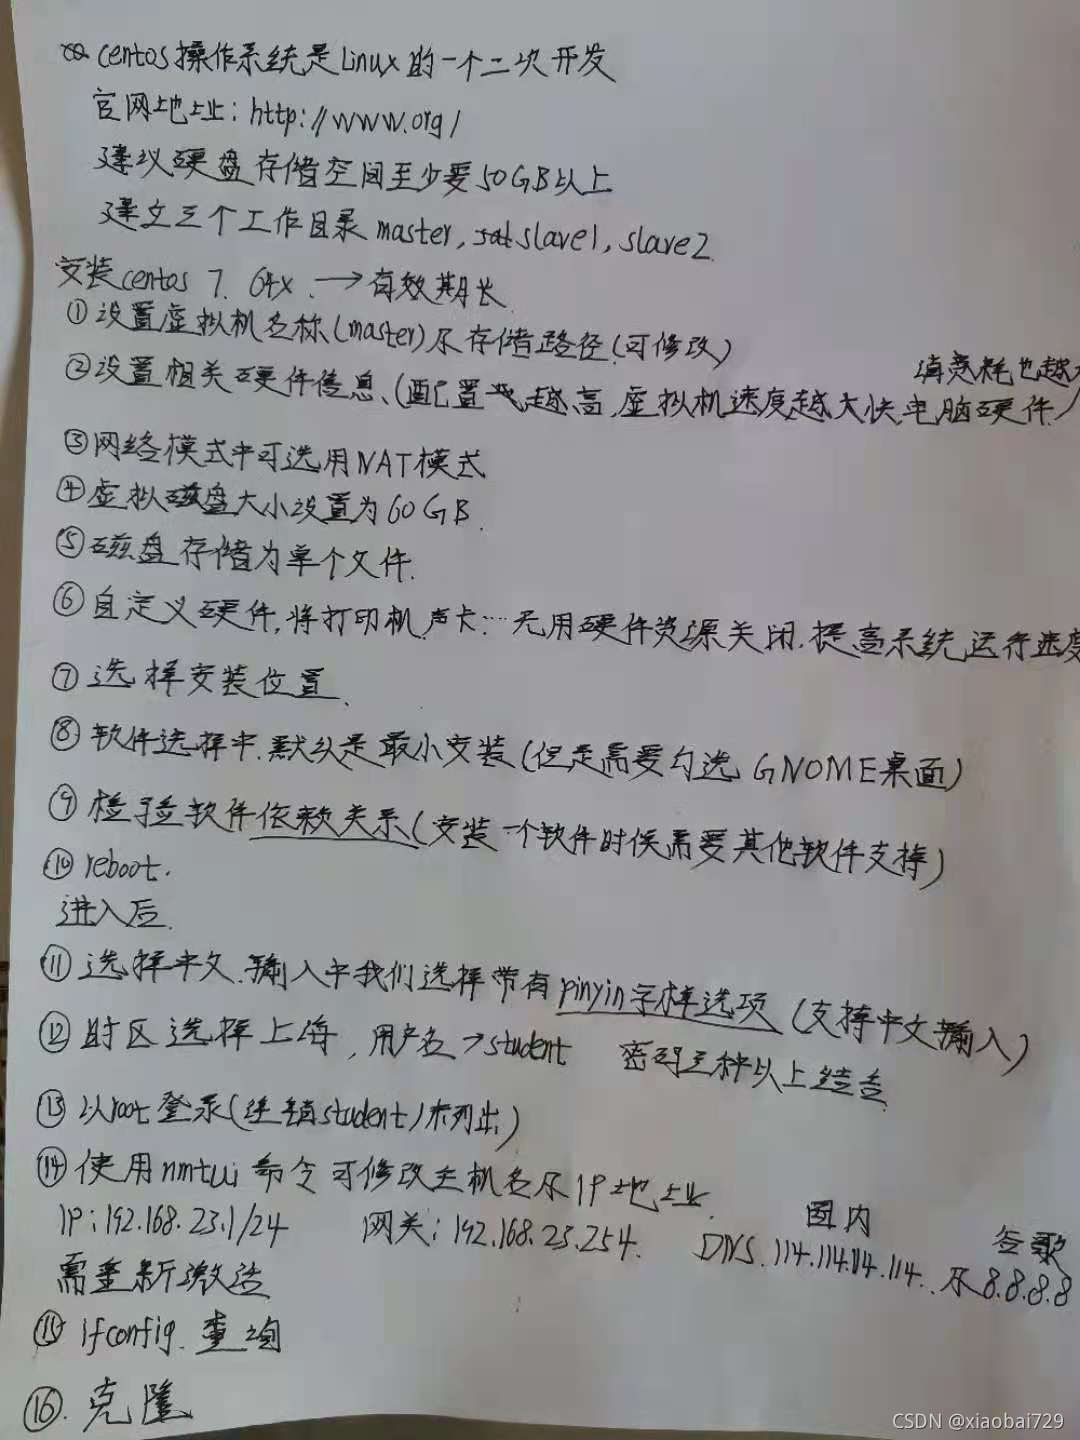 centos操作系统是Linux的一个二次开发
官网地址:http://www.org/
建议硬盘存储空间至少要50GB以上
建立三个工作目录master,slave1,slave2
安装centos 7. 64x. →有效期长
①设置虚拟机名称(master)及存储路径(可修改)
消耗也越大
②设置相关硬件信息、(配置越高,虚拟机速度越快,电脑硬件)
③网络模式中可选用NAT模式
④虚拟磁盘大小设置为60GB.
⑤磁盘存储为单个文件.
⑥自定义硬件,将打印机,声卡…无用硬件资源关闭.提高系统运行速度
⑦选择安装位置.
⑧软件选择中.默认是最小安装(但是需要勾选GNOME桌面)
⑨检验软件依赖关系(安装一个软件时候需要其他软件支持)
⑩reboot.
进入后.
⑪选择中文.输入中我们选择带有pinyin字样选项(支持中文输入)
⑫时区选择上海,用户名→student 密码三种以上结合
⑬以root登录(注销student/未列出)
⑭使用nmtui命令可修改主机名及IP地址.
国内 谷歌
IP:192.168.23.1/24 网关:192.168.23.254. DNS.114.114.114.114..及8.8.8.8
需重新激活
⑮ifconfig.查询
⑯.克隆
CSDN @xiaobai729